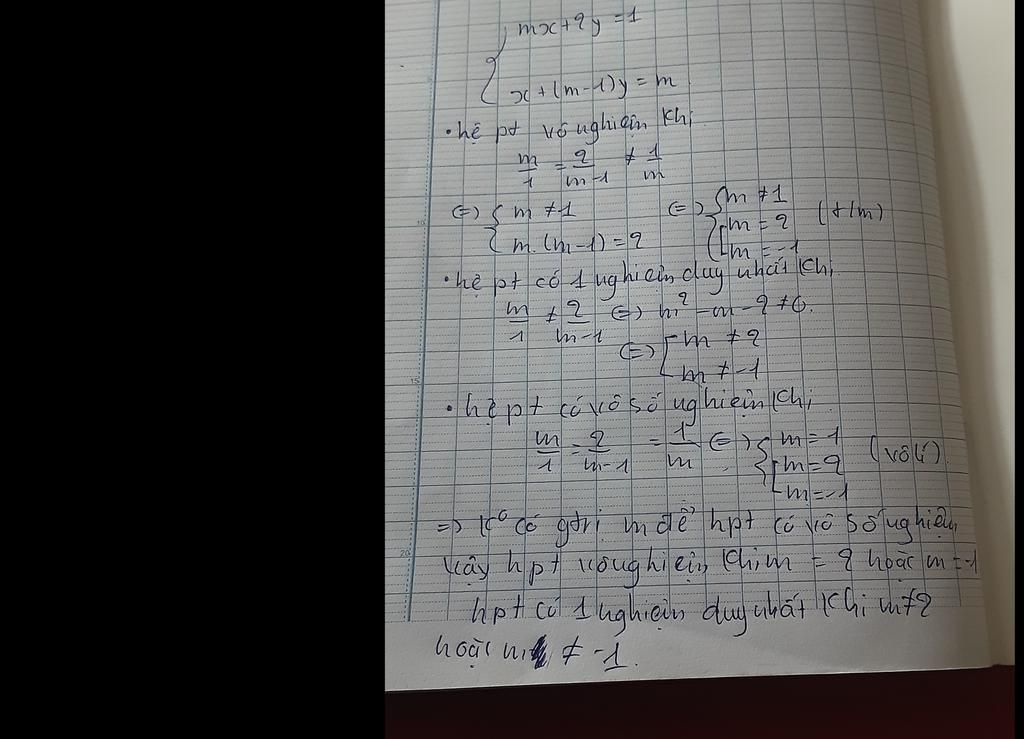 { mx+2y=1
x+(m-1)y=m
• hệ pt vô nghiệm khi
m/1 = 2/m-1 ≠ 1/m
<=> { m ≠ 1 <=> { m ≠ 1
{ m.(m-1)=2 [ m = 2 (t/m)
[ m = -1
• hệ pt có 1 nghiệm duy nhất khi
m/1 ≠ 2/m-1 <=> m² - m - 2 ≠ 0.
<=> [ m ≠ 2
[ m ≠ -1
• hệ pt có vô số nghiệm khi
m/1 = 2/m-1 = 1/m <=> { m = 1
[ m = 2 (vô lí)
[ m = -1
=> K° có gtrị m để hpt có vô số nghiệm
Vậy hpt vô nghiệm khi m = 2 hoặc m = -1
hpt có 1 nghiệm duy nhất khi m ≠ 2
hoặc m ≠ -1.